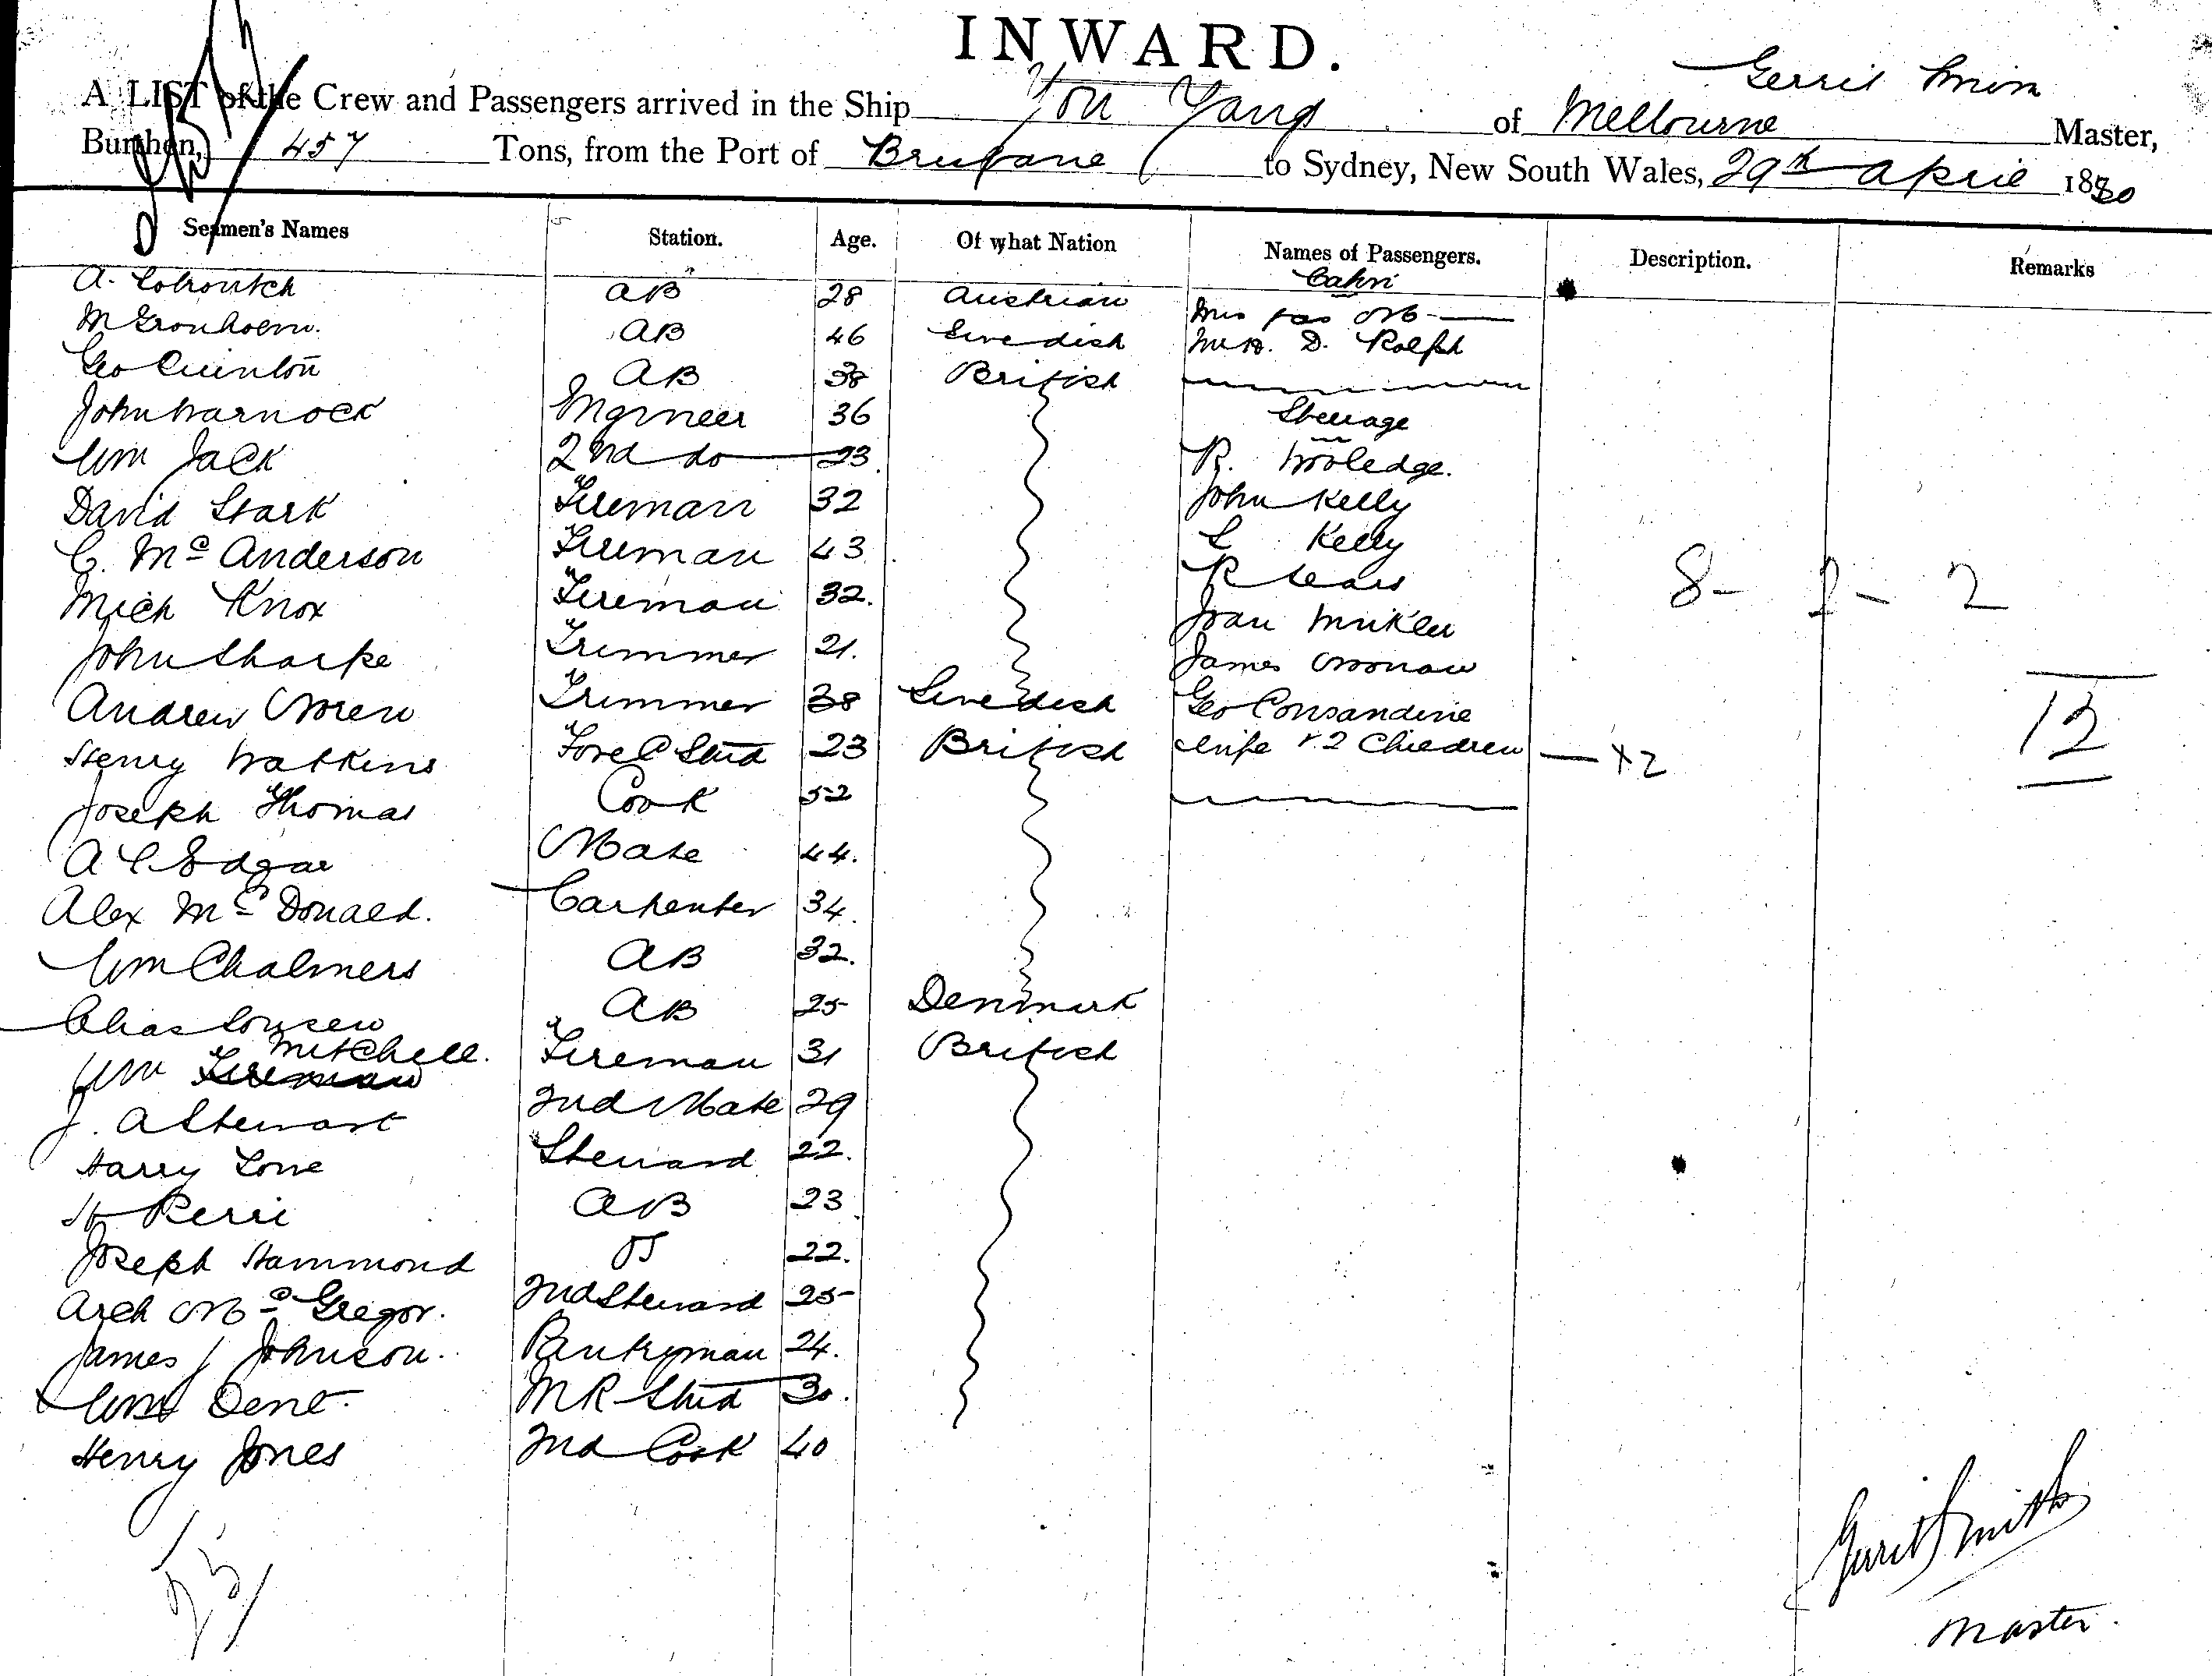 INWARD.
Gerrit Smith
A LIST of the Crew and Passengers arrived in the Ship You Yang of Melbourne Master,
Burthen, 457 Tons, from the Port of Brisbane to Sydney, New South Wales, 29th April 1880
Seamen's Names Station. Age. Of what Nation Names of Passengers. Description. Remarks
Cabin
A. AB 28 Austrian Mrs
M Gronholm. AB 46 Swedish Mrs. D. Rolph
Geo Quinton AB 38 British
John Warnock Engineer 36 Steerage
Wm Jack 2nd do 23 R. Wooledge.
David Stark Fireman 32 John Kelly
C. Mc Anderson Fireman 43 L Kelly
Mich Knox Fireman 32. R Sears 8 - 1 - 2
John Sharpe Trimmer 21. Joan
James
Andrew Trimmer 38 Swedish Geo Consandine 12
Henry Watkins Fore C Std 23 British Wife & 2 Children — x2
Joseph Thomas Cook 52
A C Edgar Mate 44.
Alex Mc Donald. Carpenter 34.
Wm Chalmers AB 32.
Chas AB 25 Denmark
Wm Fireman Mitchell. Fireman 31 British
J. A Stewart 2nd Mate 29
Harry Lone Steward 22.
AB 23
Joseph Hammond OS 22.
Arch Mc Gregor. 2nd Steward 25
James J Johnson. Pantryman 24.
Wm Dent. MR Std 30.
Henry Jones 2nd Cook 40
Gerrit Smith
Master.